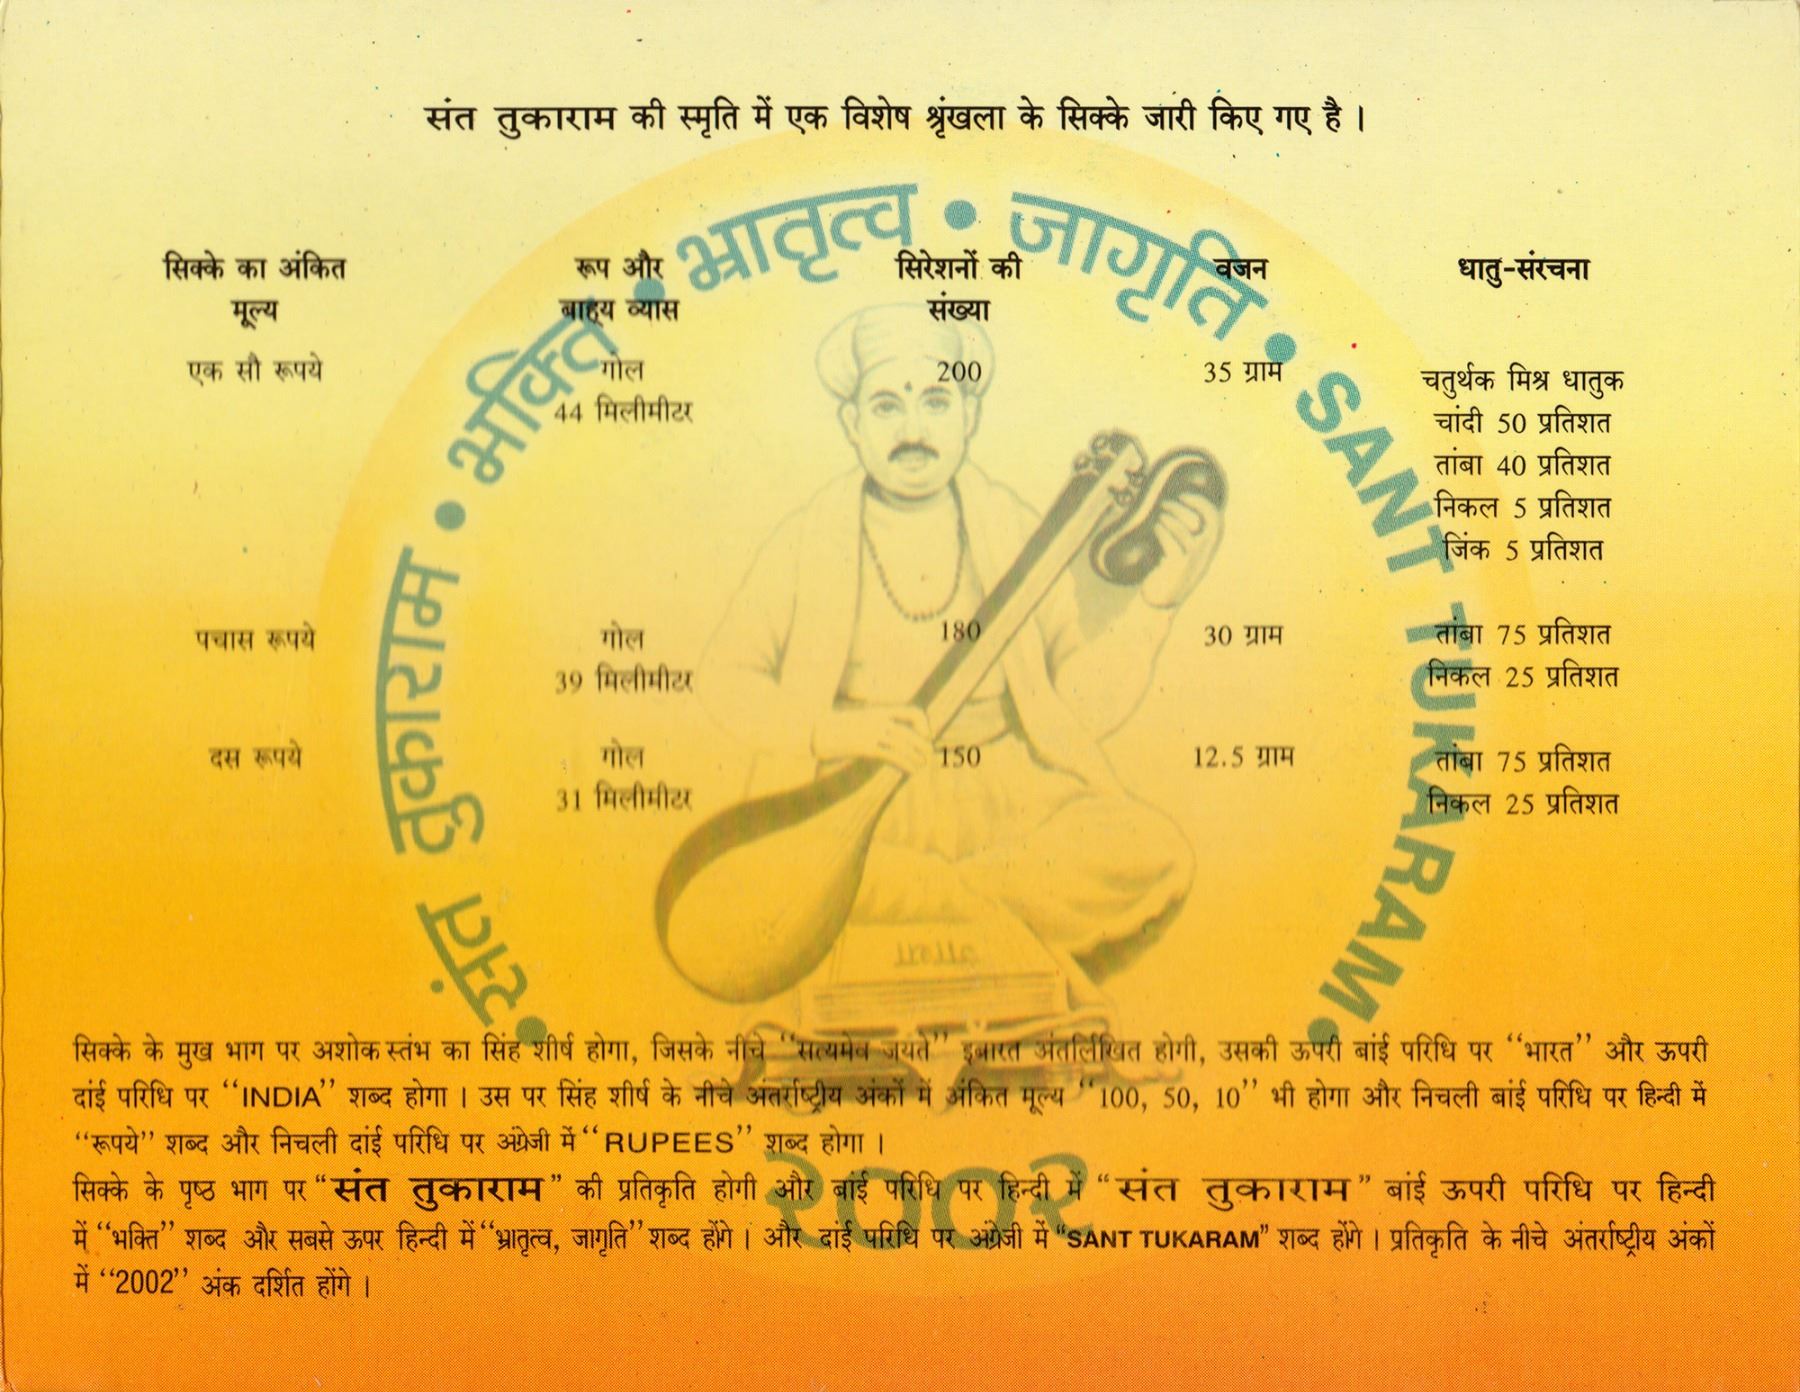 संत तुकाराम की स्मृति में एक विशेष श्रृंखला के सिक्के जारी किए गए है ।
संत तुकाराम • भक्ति • भ्रातृत्व • जागृति • SANT TUKARAM
सिक्के का अंकित रूप और सिरेशनों की वजन धातु-संरचना
मूल्य बाह्य व्यास संख्या
एक सौ रूपये गोल 200 35 ग्राम चतुर्थक मिश्र धातुक
44 मिलीमीटर चांदी 50 प्रतिशत
तांबा 40 प्रतिशत
निकल 5 प्रतिशत
जिंक 5 प्रतिशत
पचास रूपये गोल 180 30 ग्राम तांबा 75 प्रतिशत
39 मिलीमीटर निकल 25 प्रतिशत
दस रूपये गोल 150 12.5 ग्राम तांबा 75 प्रतिशत
31 मिलीमीटर निकल 25 प्रतिशत
सिक्के के मुख भाग पर अशोक स्तंभ का सिंह शीर्ष होगा, जिसके नीचे “सत्यमेव जयते” इबारत अंतर्लिखित होगी, उसकी ऊपरी बांई परिधि पर “भारत” और ऊपरी
दांई परिधि पर “INDIA” शब्द होगा । उस पर सिंह शीर्ष के नीचे अंतर्राष्ट्रीय अंकों में अंकित मूल्य “100, 50, 10” भी होगा और निचली बांई परिधि पर हिन्दी में
“रूपये” शब्द और निचली दांई परिधि पर अंग्रेजी में “RUPEES” शब्द होगा ।
सिक्के के पृष्ठ भाग पर “संत तुकाराम” की प्रतिकृति होगी और बांई परिधि पर हिन्दी में “संत तुकाराम” बांई ऊपरी परिधि पर हिन्दी
में “भक्ति” शब्द और सबसे ऊपर हिन्दी में “भ्रातृत्व, जागृति” शब्द होंगे । और दांई परिधि पर अंग्रेजी में “SANT TUKARAM” शब्द होंगे । प्रतिकृति के नीचे अंतर्राष्ट्रीय अंकों
में “2002” अंक दर्शित होंगे ।
२००२